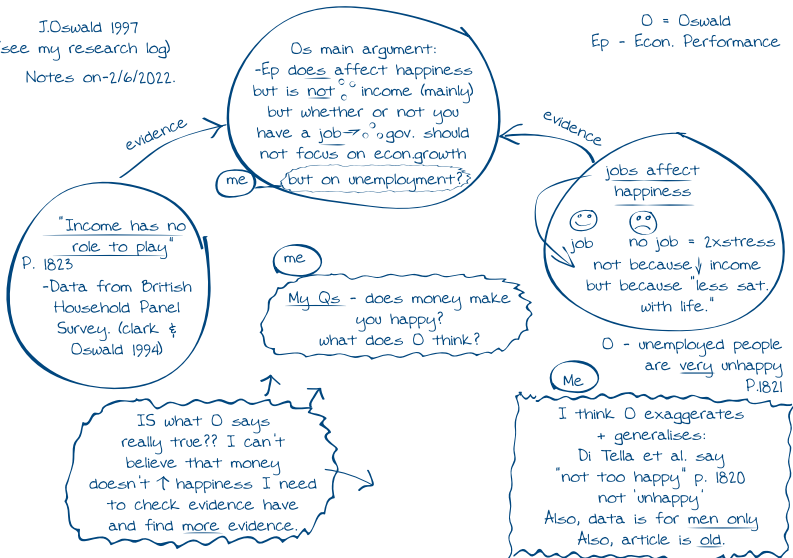 J.Oswald 1997
(see my research log)
Notes on-2/6/2022.
O = Oswald
Ep - Econ. Performance
Os main argument:
-Ep does affect happiness
but is not ∵ income (mainly)
but whether or not you
have a job → ∴ gov. should
not focus on econ.growth
but on unemployment?
me
evidence
evidence
"Income has no
role to play"
P. 1823
-Data from British
Household Panel
Survey. (clark &
Oswald 1994)
jobs affect
happiness
job no job = 2xstress
not because ↓ income
but because "less sat.
with life."
O - unemployed people
are very unhappy
P.1821
me
My Qs - does money make
you happy?
what does O think?
IS what O says
really true?? I can't
believe that money
doesn't ↑ happiness I need
to check evidence have
and find more evidence.
Me
I think O exaggerates
+ generalises:
Di Tella et al. say
"not too happy" p. 1820
not 'unhappy'
Also, data is for men only
Also, article is old.